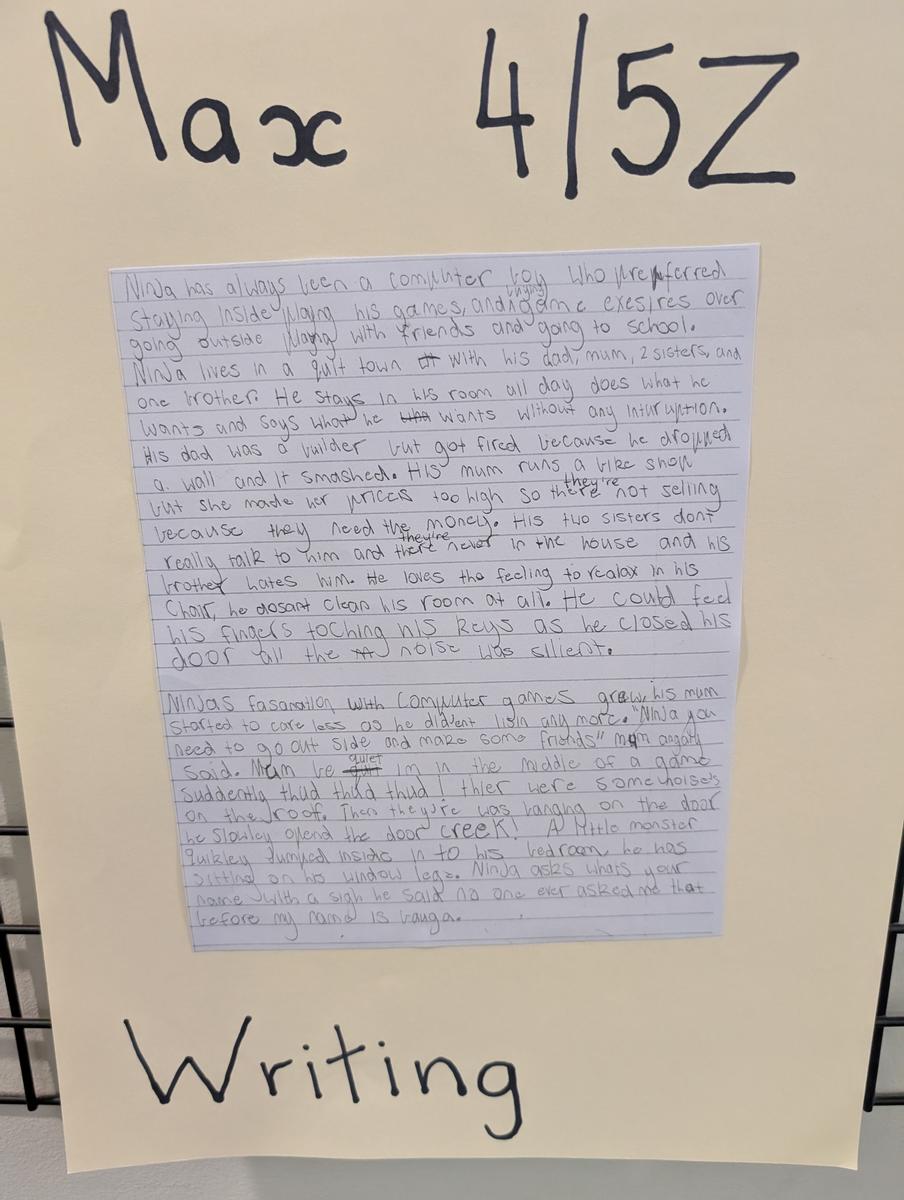 Max 4/5Z
Ninja has always been a computer boy who preferred
staying inside playing his games, and buying game exesires over
going outside playing with friends and going to school.
Ninja lives in a quit town with his dad, mum, 2 sisters, and
one brother. He stays in his room all day does what he
wants and says what he wants without any inturuption.
His dad was a builder but got fired because he dropped
a wall and it smashed. His mum runs a bike shop
but she made her prices too high so they're not selling
because they need the money. His two sisters dont
really talk to him and they're never in the house and his
brother hates him. He loves the feeling to realax in his
Chair, he dosant clean his room at all. He could feel
his fingers toching his keys as he closed his
door all the noise was silient.
Ninjas fasanation with computer games grew, his mum
started to care less as he did'ent lisin any more. "Ninja you
need to go out side and make some friends" mum angarly
said. Mum be quiet im in the middle of a game
suddently thud thud thud! thier were some noises
on the roof. Then they're was banging on the door
he slowley opend the door creek! A little monster
quikley Jumped inside in to his bedroom he was
sitting on his window lege. Ninja asks whats your
name with a sigh he said no one ever asked me that
before my name is bauga.
Writing